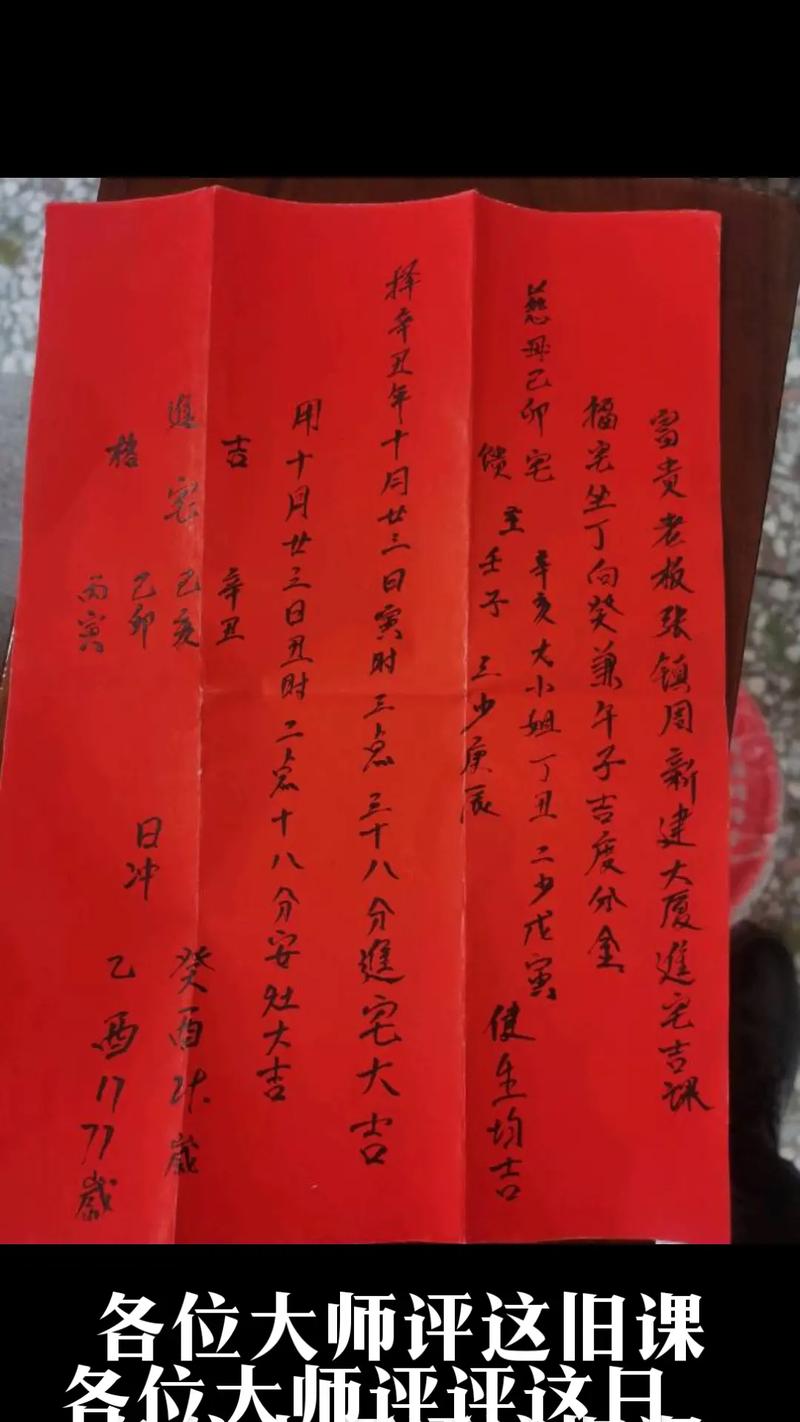 富贵老板张镇周新建大厦進宅吉课
福宅坐丁向癸兼午子吉度分金
慈母己卯宅
主
辛亥大小姐丁丑二少戊寅
壬子 三少庚辰
健生均吉
择辛丑年十月廿三日寅时三点三十八分進宅大吉
用十月廿三日丑时二点十八分安灶大吉
吉
進宅
格
辛丑
己亥
己卯
丙寅
日冲
癸酉
歲
乙酉17 77歲
各位大师评这旧课
各位大师评评这日